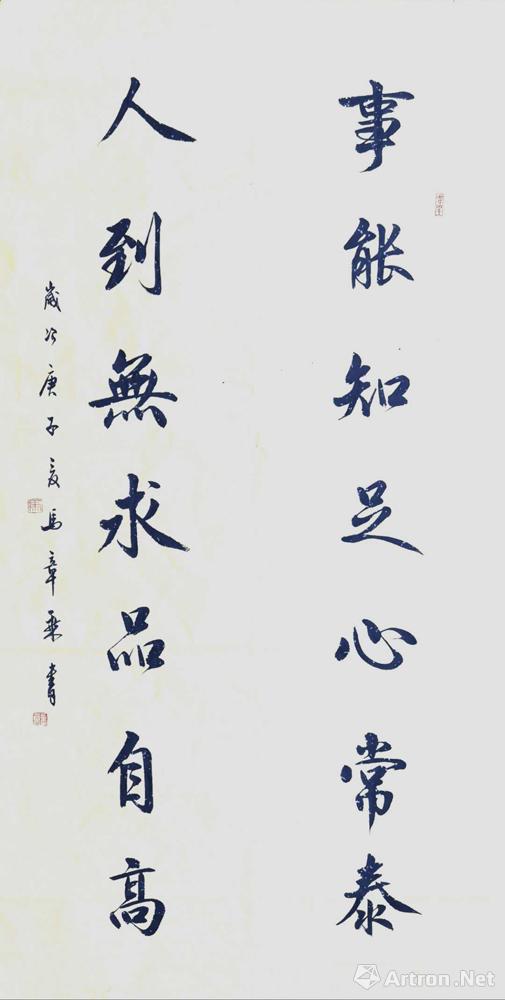 事能知足心常泰
人到無求品自高
歲次庚子夏馬章乘書
Artron.Net